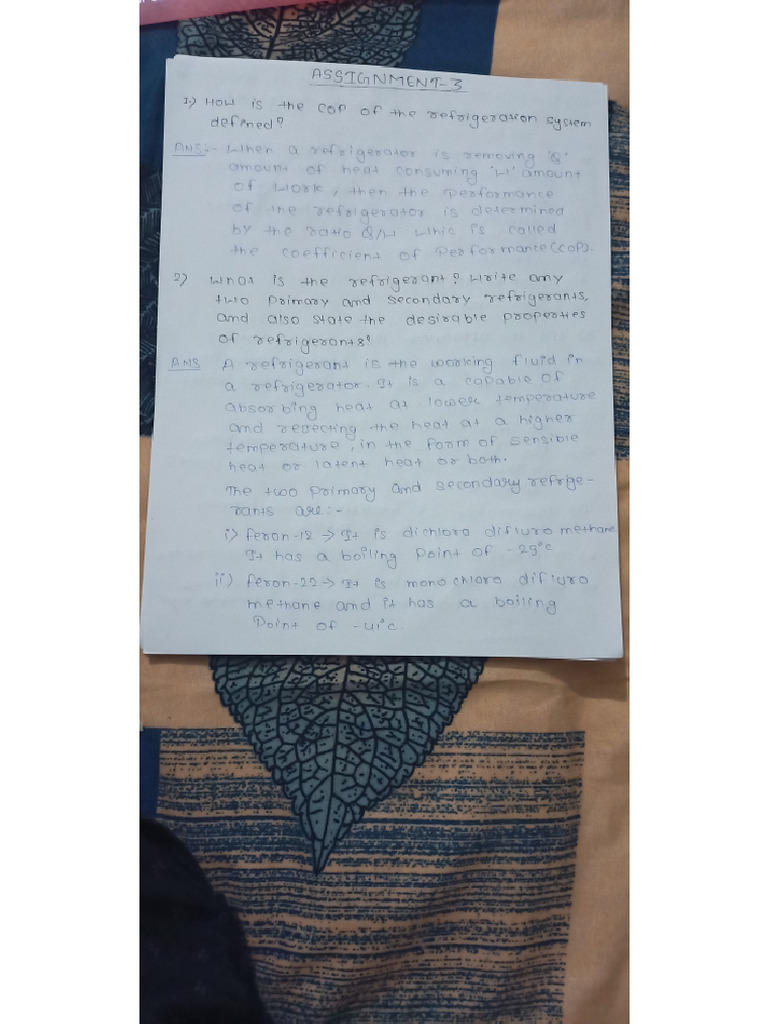 ASSIGNMENT-3
1) How is the cop of the refrigeration system
defined?
ANS:- When a refrigerator is removing 'Q'
amount of heat consuming 'W' amount
of work, then the performance
of the refrigerator is determined
by the ratio Q/W whic is called
the coefficient of performance(cop).
2) What is the refrigerant? Write any
two primary and secondary refrigerants,
and also state the desirable properties
of refrigerants?
ANS A refrigerant is the working fluid in
a refrigerator. It is a capable of
absorbing heat at lower temperature
and rejecting the heat at a higher
temperature, in the form of sensible
heat or latent heat or both.
The two primary and secondary refrige-
rants are:-
i) feron-12 → It is dichloro difluro methane
It has a boiling point of -29°c
ii) feron-22 → It is monochloro difluro
methane and it has a boiling
Point of -41°c.